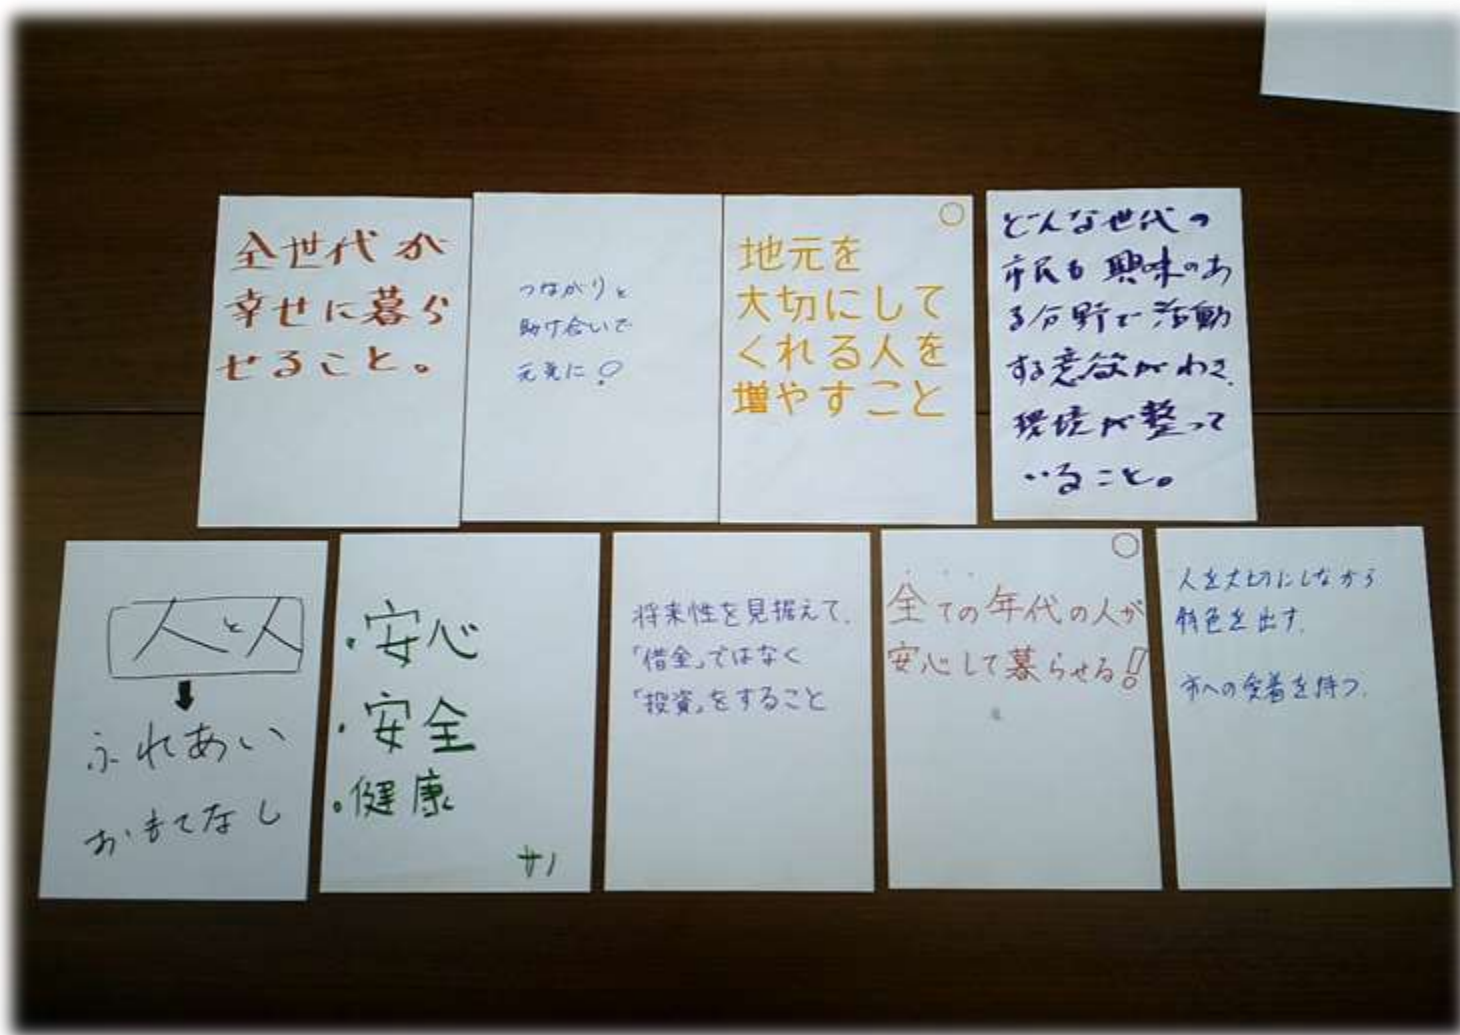 全世代が
幸せに暮ら
せること。
つながりと
助け合いで
元気に!
地元を
大切にして
くれる人を
増やすこと
どんな世代の
市民も興味のあ
る分野で活動
する意欲がわき、
環境が整って
いること。
人と人
ふれあい
おもてなし
・安心
・安全
・健康
サノ
将来性を見据えて、
「借金」ではなく
「投資」をすること
全ての年代の人が
安心して暮らせる!!
人を大切にしながら
特色を出す。
市への愛着を持つ。